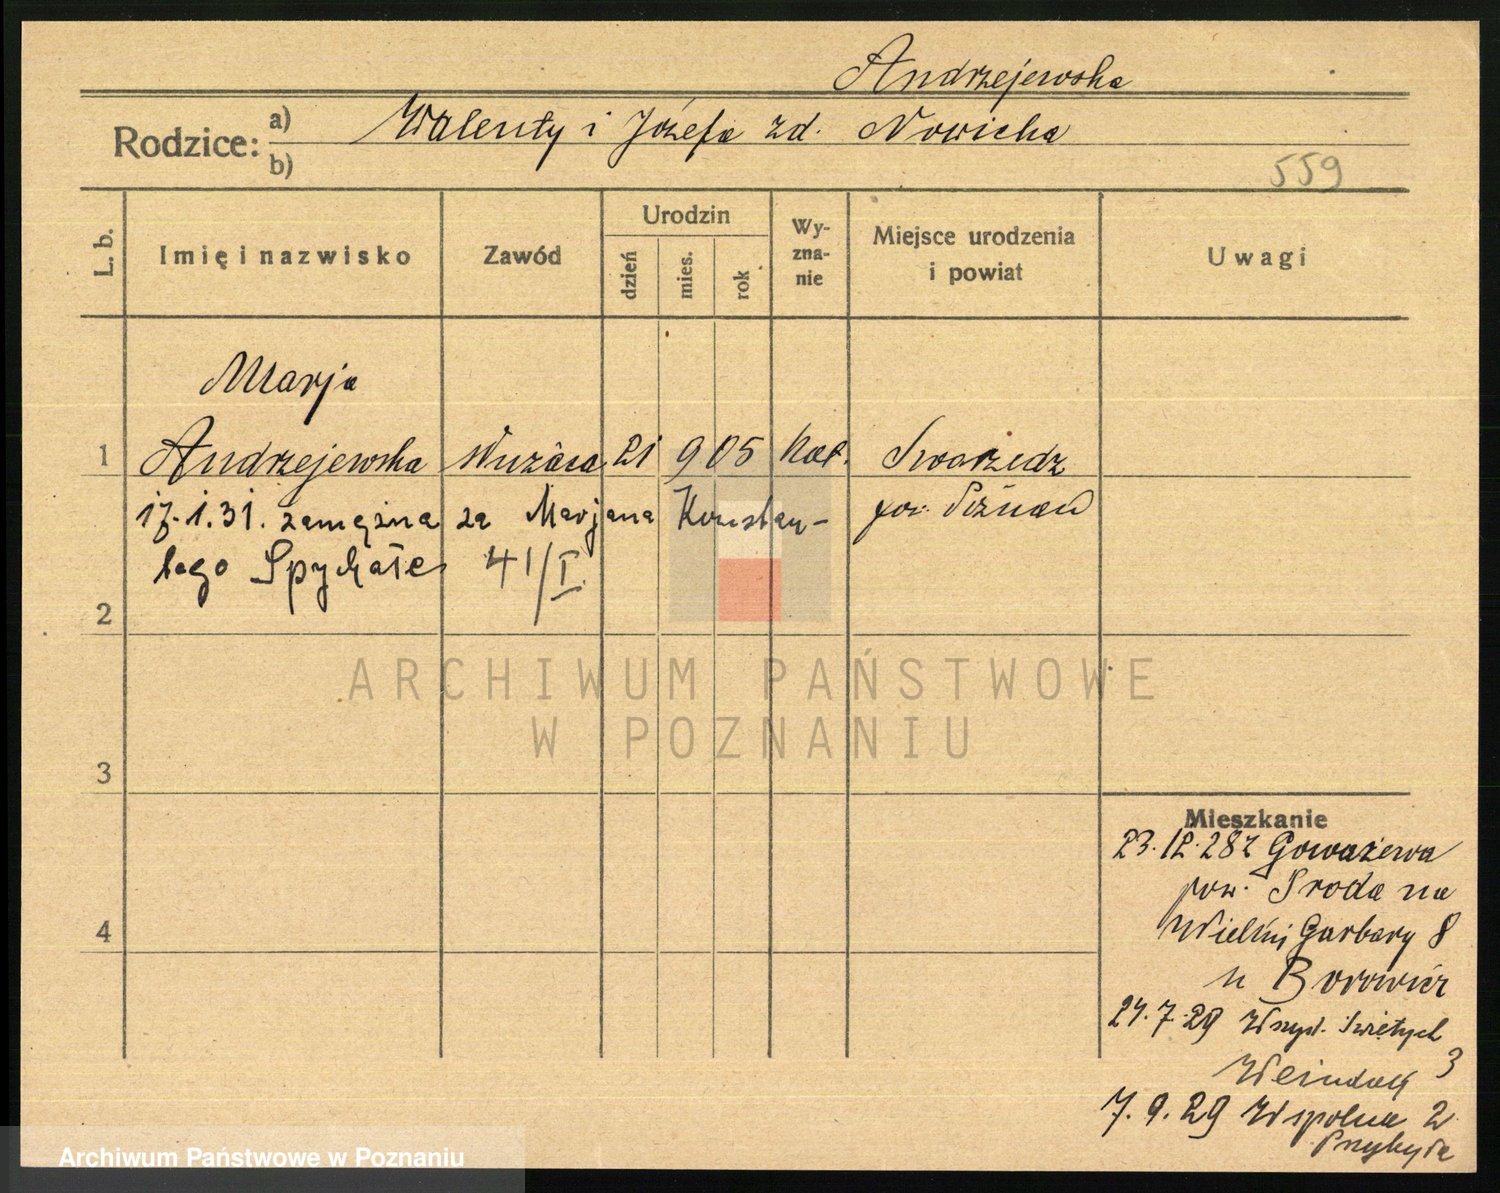 Andrzejewska
Rodzice: a) Walenty i Józefa zd. Nowicka
b)
559
L. b.
Imię i nazwisko
Zawód
Urodzin
dzień
mies.
rok
Wy-
zna-
nie
Miejsce urodzenia
i powiat
Uwagi
Marja
1 Andrzejewska służąca 21 9 05 kat. Swarzędz
17.1.31. zamężna za Marjana Konstan- pow. Poznań
tego Spychałę 41/I.
2
3
4
ARCHIWUM PAŃSTWOWE
W POZNANIU
Mieszkanie
23.12.28 z Gowarzewa
pow. Środa na
Wielkie Garbary 8
u Borowicz
24.7.29 Wszyst. Świętych
3
7.9.29 Wspólna 2
Przybyła
Archiwum Państwowe w Poznaniu